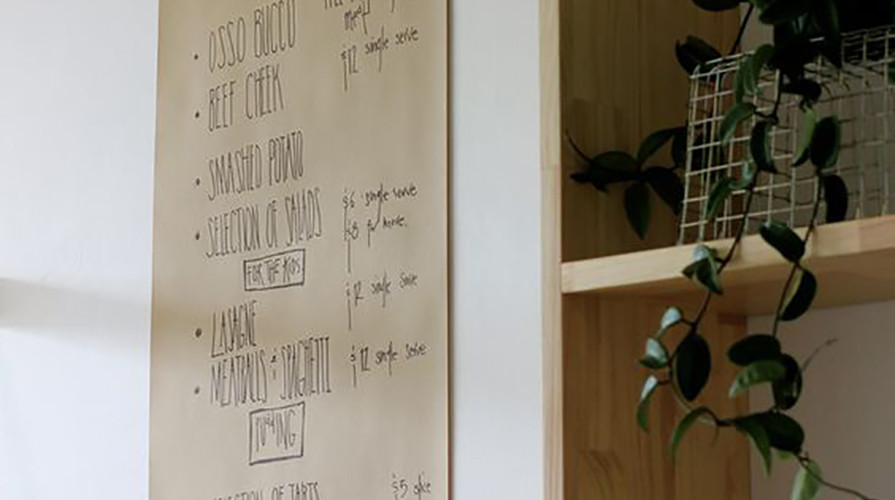 meat
OSSO BUCCO
$12 single serve
BEEF CHEEK
SMASHED POTATO
$6 single serve
SELECTION OF SALADS
$8 for
FOR THE KIDS
$12 single serve
LASAGNE
MEATBALLS & SPAGHETTI
$12 single serve
SELECTION OF TARTS
$5 slice